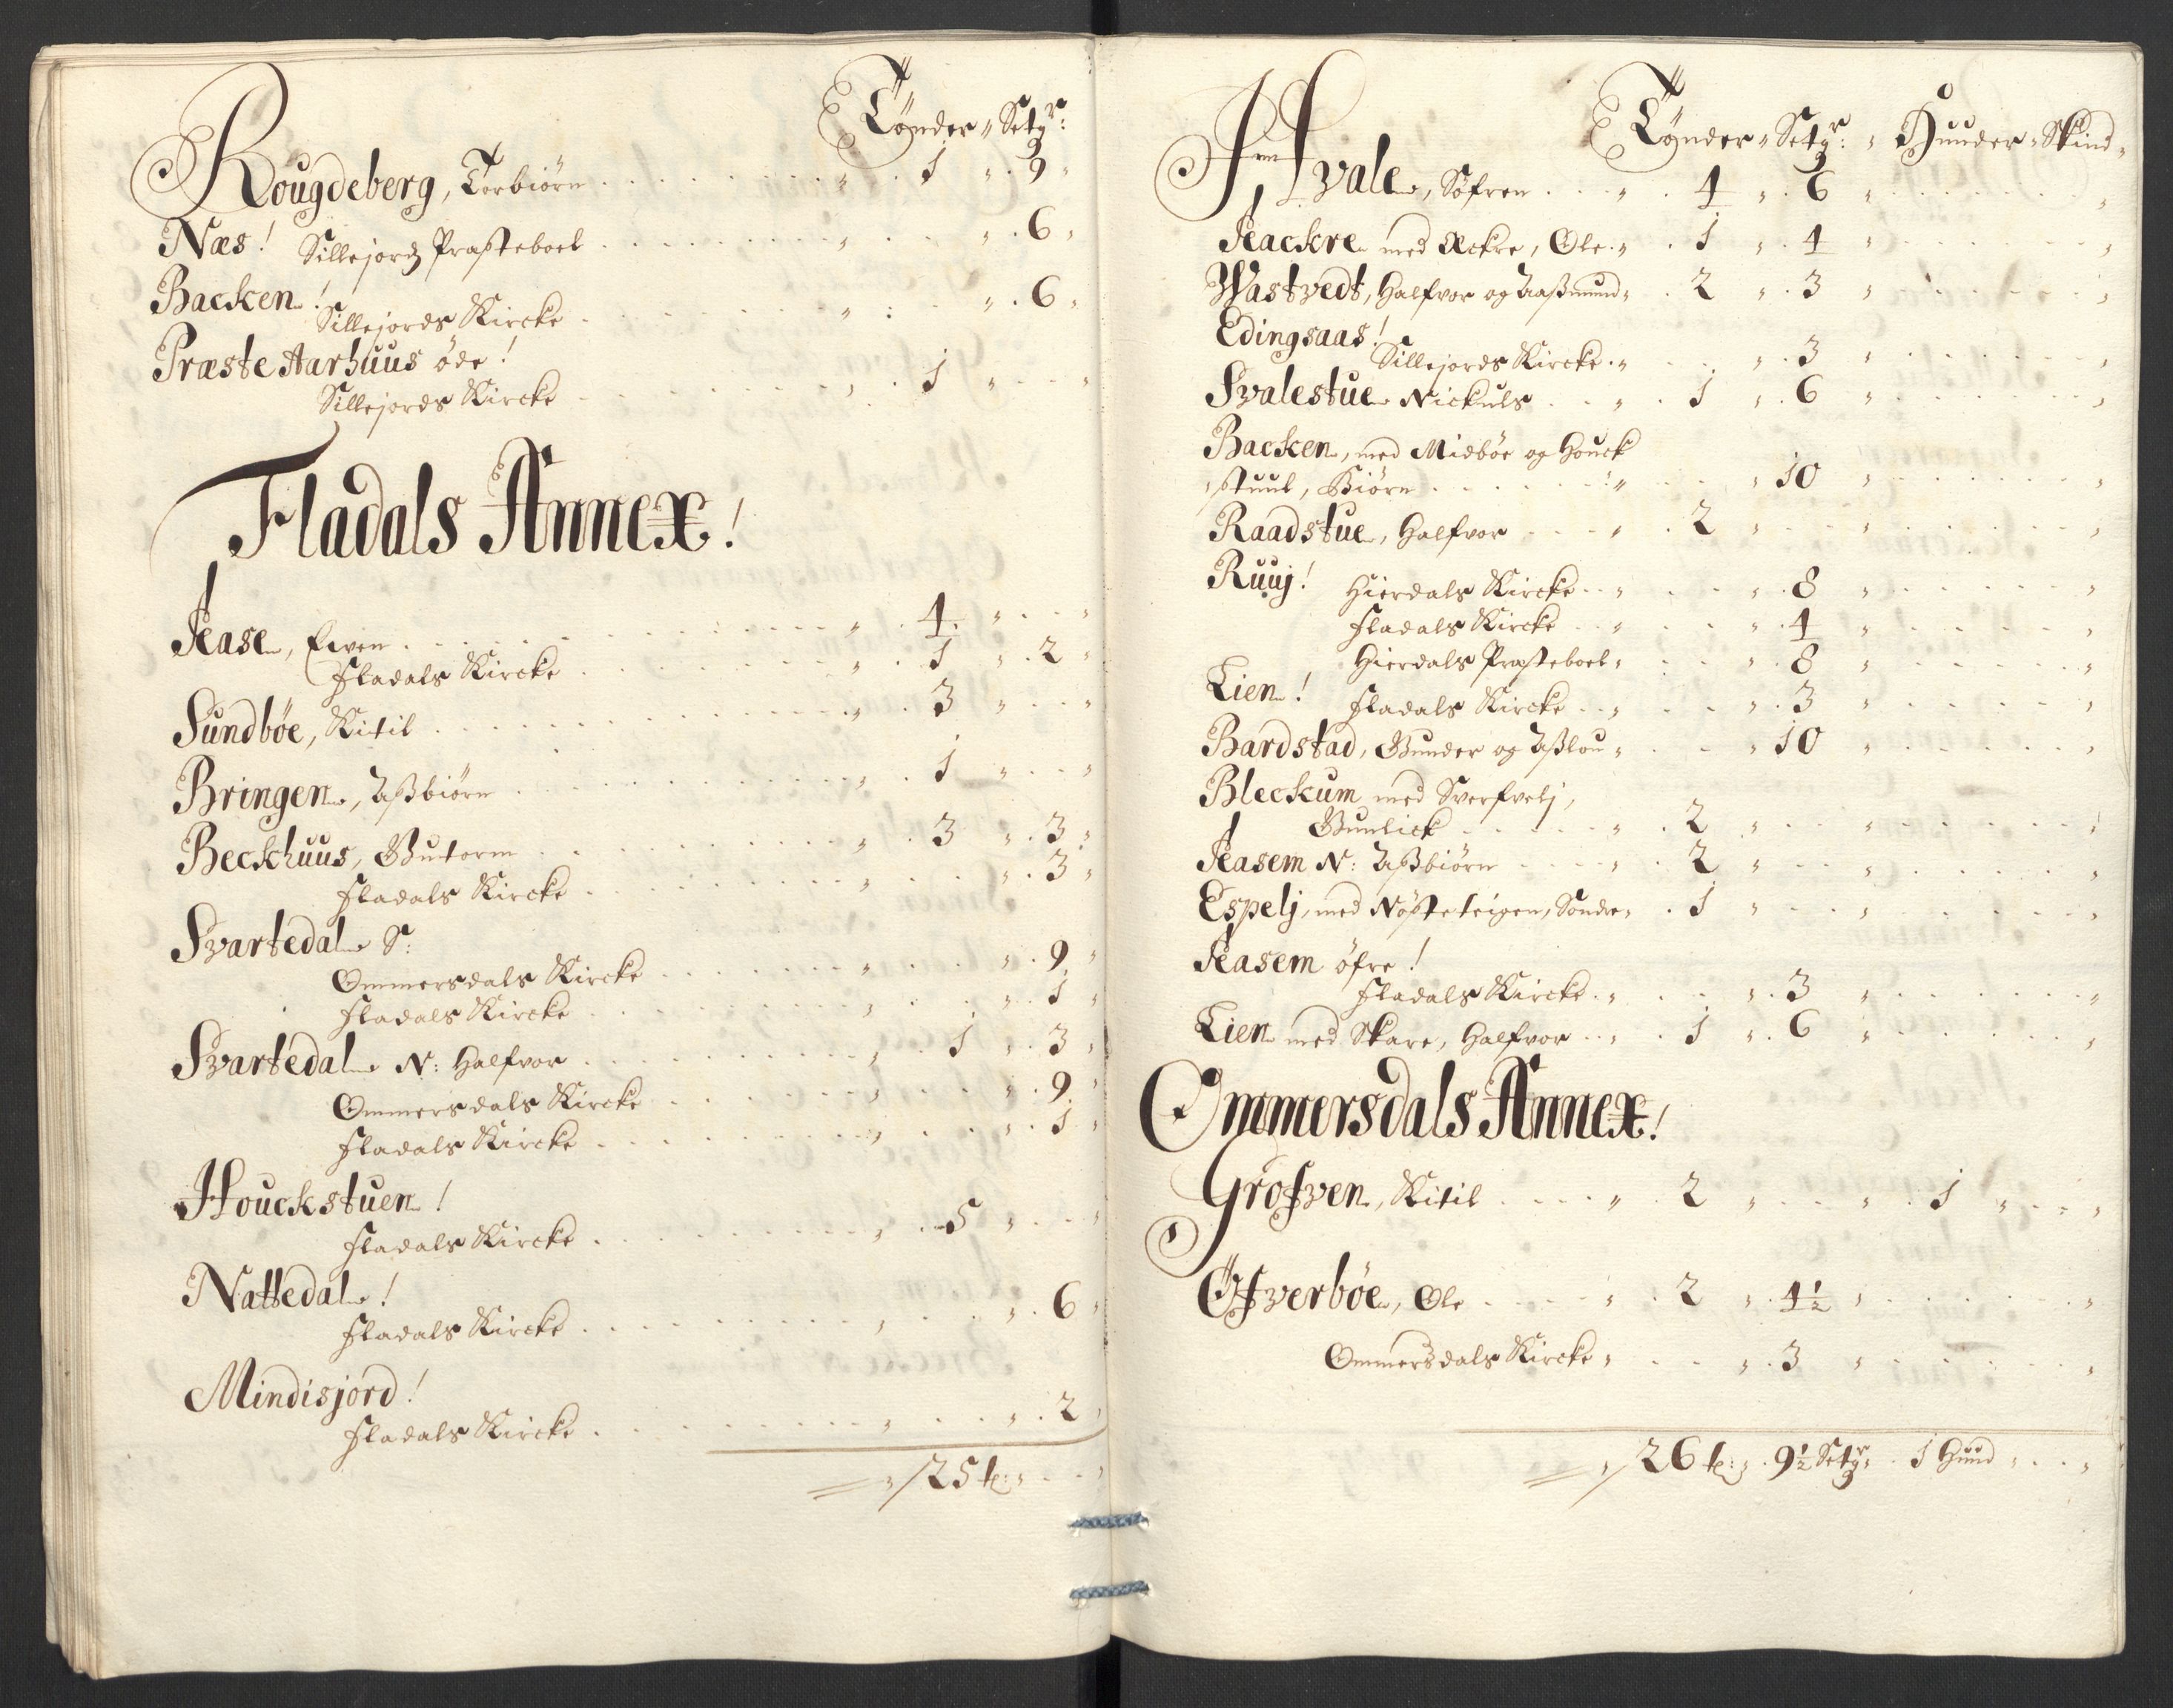 Tønder " Setgr:
Rougdeberg, Torbiörn . . . " . 1 " . 9 "
Næs! Sillejords Præsteboel . . . " . . . " . 6 "
Backen!
Sillejords Kircke . . . " . . . " . 6 "
Præste Aarhuus öde!
Sillejords Kircke . . . " . 1 " . . "
Fladals Annex!
Aase, Eiven . . . " . 4 . " . . "
Fladals Kircke . . . " . 1 " . 2 "
Sundböe, Kitil . . . " . 3 " . . "
Bringen, Assbiörn . . . " . 1 " . . "
Beckhuus, Gutorm . . . " . 3 " . 3 "
Fladals Kircke . . . " . . . " . 3 "
Svartedal S:
Ommersdals Kircke . . . " . . . " . 9 "
Fladals Kircke . . . " . . . " . 1 "
Svartedal N: Halfvor . . . " . 1 " . 3 "
Ommersdals Kircke . . . " . . . " . 9 "
Fladals Kircke . . . " . . . " . 1 "
Houckstuen!
Fladals Kircke . . . " . 5 " . . "
Nattedal!
Fladals Kircke . . . " . . . " . 6 "
Mindisjord!
Fladals Kircke . . . " . . . " . 2 "
" 25 tr: " . . "
Tønder " Setgr: " Huuder " Skind "
Hvale, Söfren . . . " . 4 " . 6 " . . . "
Aackre med Ackre, Ole . " . 1 " . 4 " . . . "
Wastvedt, Halfvor og Aassmund " . 2 " . 3 " . . . "
Edingsaas!
Sillejords Kircke . " . . " . 3 " . . . "
Svalestue Nickuls . . " . 1 " . 6 " . . . "
Backen, med Midböe og Houck
stuul, Biörn . . . " . . " 10 " . . . "
Raadstue, Halfvor . . . " . 2 " . . " . . . "
Ruuj! Hierdals Kircke . . " . . " . 8 " . . . "
Fladals Kircke . . " . . " . 4 " . . . "
Hierdals Præsteboel " . . " . 8 " . . . "
Lien! Fladals Kircke . . " . . " . 3 " . . . "
Bardstad, Gunder og Asslou " . . " 10 " . . . "
Bleckum med Sverfvelj,
Gunlick . . . " . 2 " . . " . . . "
Aasem N: Assbiörn . . . " . 2 " . . " . . . "
Espelj, med Nöste teigen, Sondre " . 1 " . . " . . . "
Aasem öfre!
Fladals Kircke . " . . " . 3 " . . . "
Lien med Skare, Halfvor . . " . 1 " . 6 " . . . "
Ommersdals Annex!
Grofven, Kitil . . . " . 2 " . . " . 1 " . . "
Ofverböe, Ole . . . " . 2 " . 4½ " . . . "
Ommersdals Kircke " . . " . 3 " . . . "
" 26 tr: " . 9½ Setgr " . 1 Huud " . . "